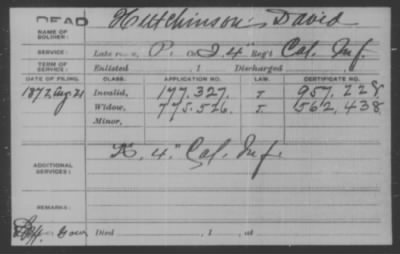 DEAD
NAME OF SOLDIER: Hutchinson, David
SERVICE: Late rank, P. Co. 2.4" Reg't Cal. Inf.
TERM OF SERVICE: Enlisted , 1 Discharged ,
DATE OF FILING. CLASS. APPLICATION NO. LAW. CERTIFICATE NO.
1872, Aug 21 Invalid, 177.327. 957.228
Widow, 775.526. 562.438
Minor,
ADDITIONAL SERVICES: K. 4." Cal. Inf.
REMARKS:
Died , 1 , at